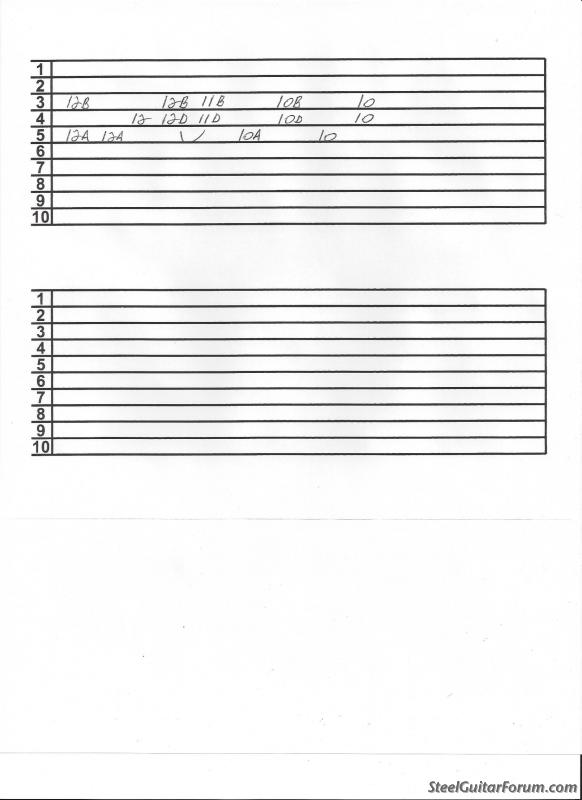 1
2
3 12B 12B 11B 10B 10
4 12 12D 11D 10D 10
5 12A 12A \ / 10A 10
6
7
8
9
10
1
2
3
4
5
6
7
8
9
10
SteelGuitarForum.com